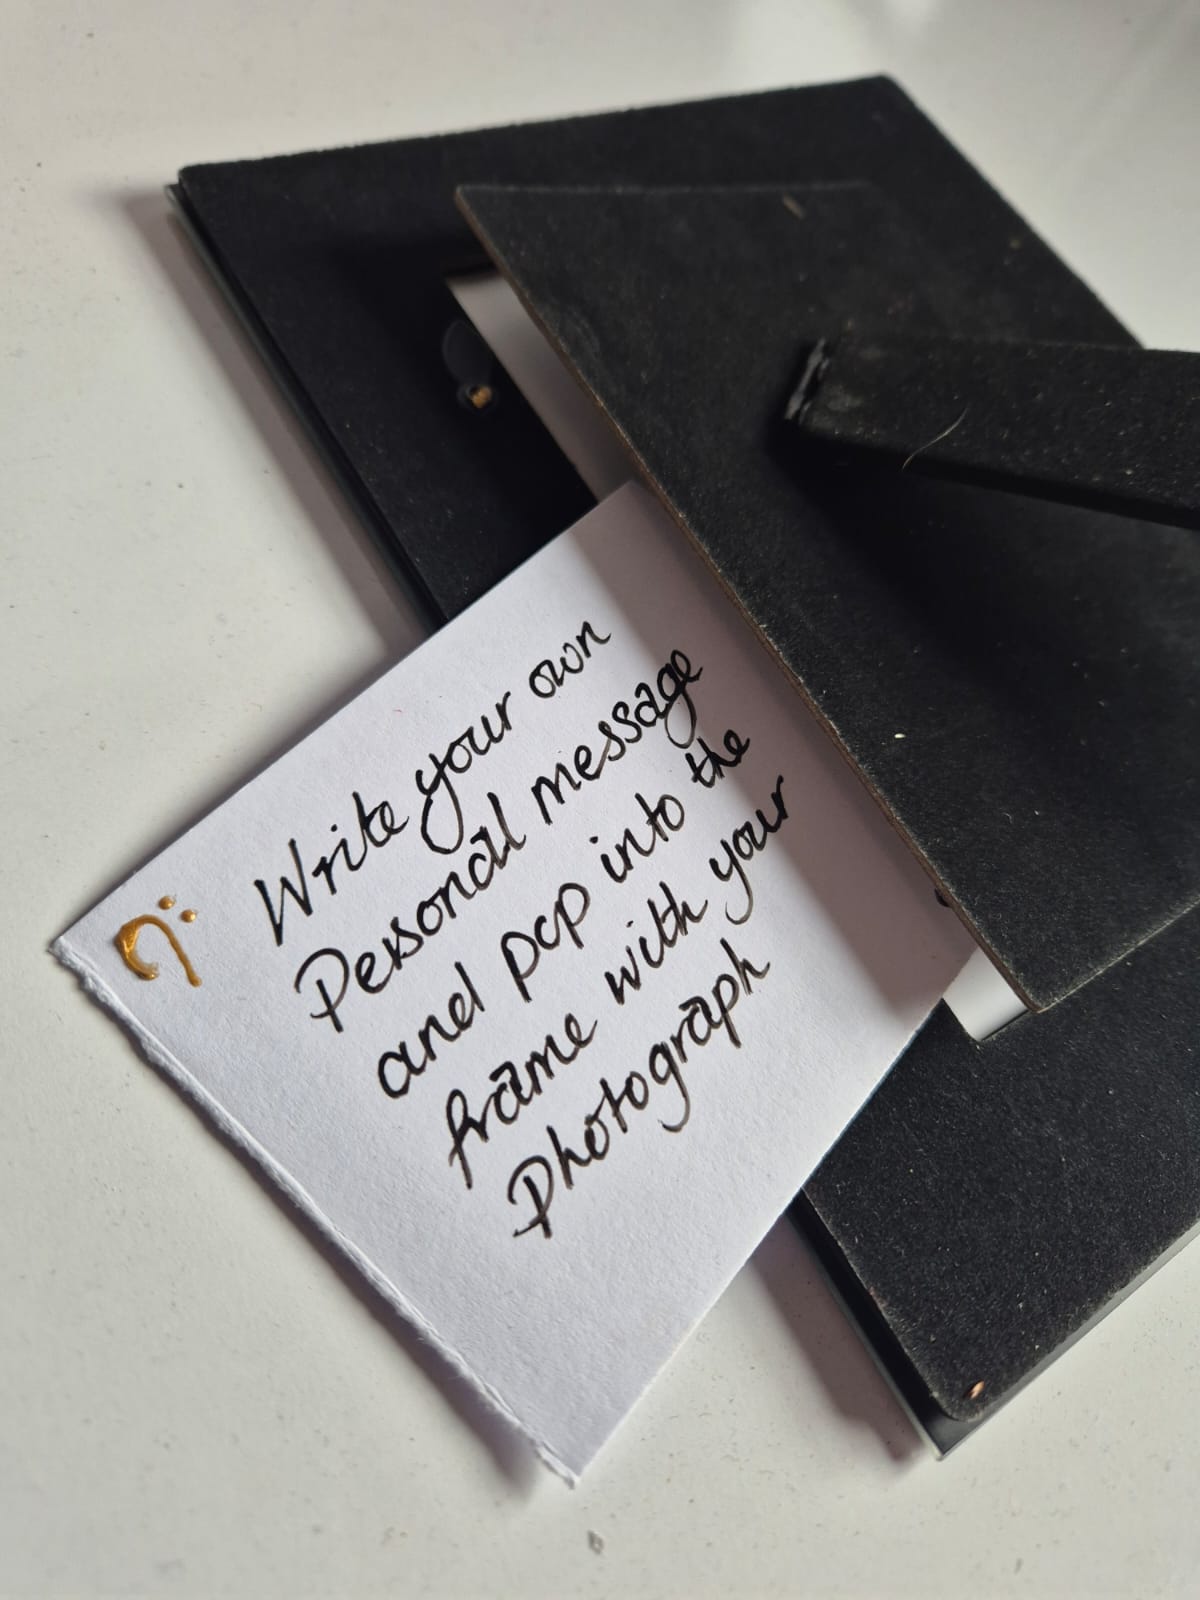 Write your own
Personal message
and pop into the
frame with your
Photograph